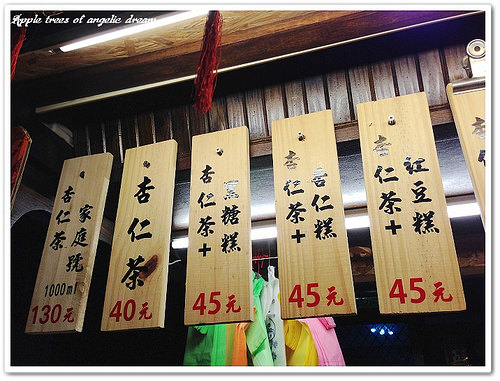 Apple trees of angelic dream
家庭號
杏仁茶
1000ml
130元
杏仁茶
40元
黑糖糕
杏仁茶+
45元
杏仁糕
杏仁茶+
45元
紅豆糕
杏仁茶+
45元
杏仁